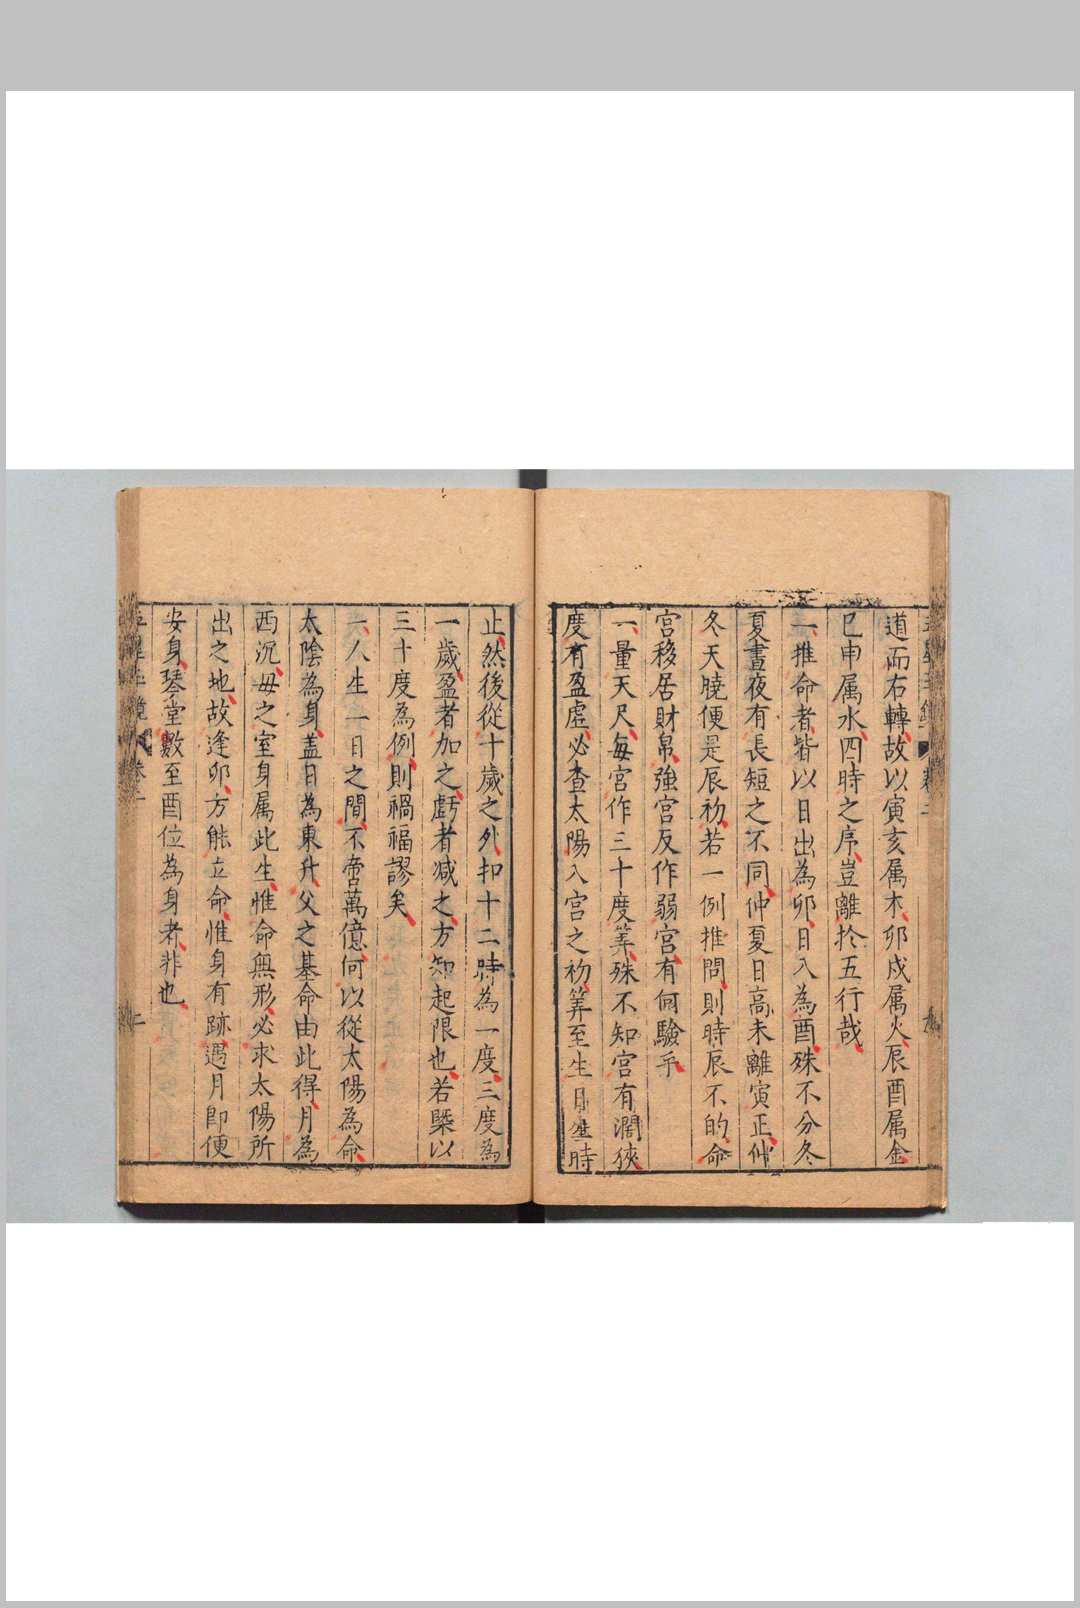 道而右轉故以寅亥属木卯戍属火辰酉属金
巳申属水四時之序豈離於五行哉
一推命者皆以日出為卯日入為酉殊不分冬
夏晝夜有長短之不同仲夏日高未離寅正仲
冬天曉便是辰初若一例推問則時辰不的命
宮移居財帛強宮反作弱宮有何驗乎
一量天尺每宮作三十度筭殊不知宮有濶狹
度有盈虛必查太陽入宮之初筭至生日生時
止然後從十歲之外扣十二時為一度三度為
一歲盈者加之虧者减之方知起限也若槩以
三十度為例則禍福謬矣
一人生一日之間不啻萬億何以從太陽為命
太陰為身盖日為東升父之基命由此得月為
西沉母之室身属此生惟命無形必求太陽所
出之地故逢卯方能立命惟身有跡遇月即便
安身琴堂數至酉位為身者非也
二